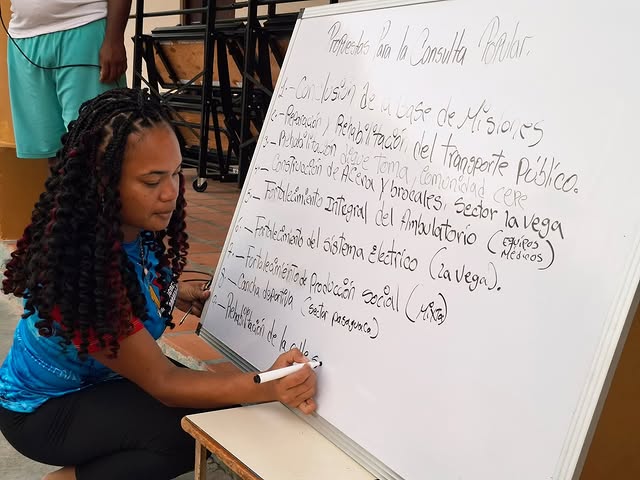 Propuestas Para la Consulta Popular.
1.- Conclusión de la base de Misiones
2.- Reparación y Rehabilitación del transporte Público.
3.- Rehabilitacion tema, comunidad cepe
4.- Construcción de Acera y brocales, sector la vega
5.- Fortalecimiento Integral del Ambulatorio (Equipos Médicos)
6.- Fortalecimiento del sistema Electrico (La vega).
7.- Fortalecimiento de Producción social (Mixta)
8.- Cancha deportiva (sector
9.- Rehabilitación de la calle